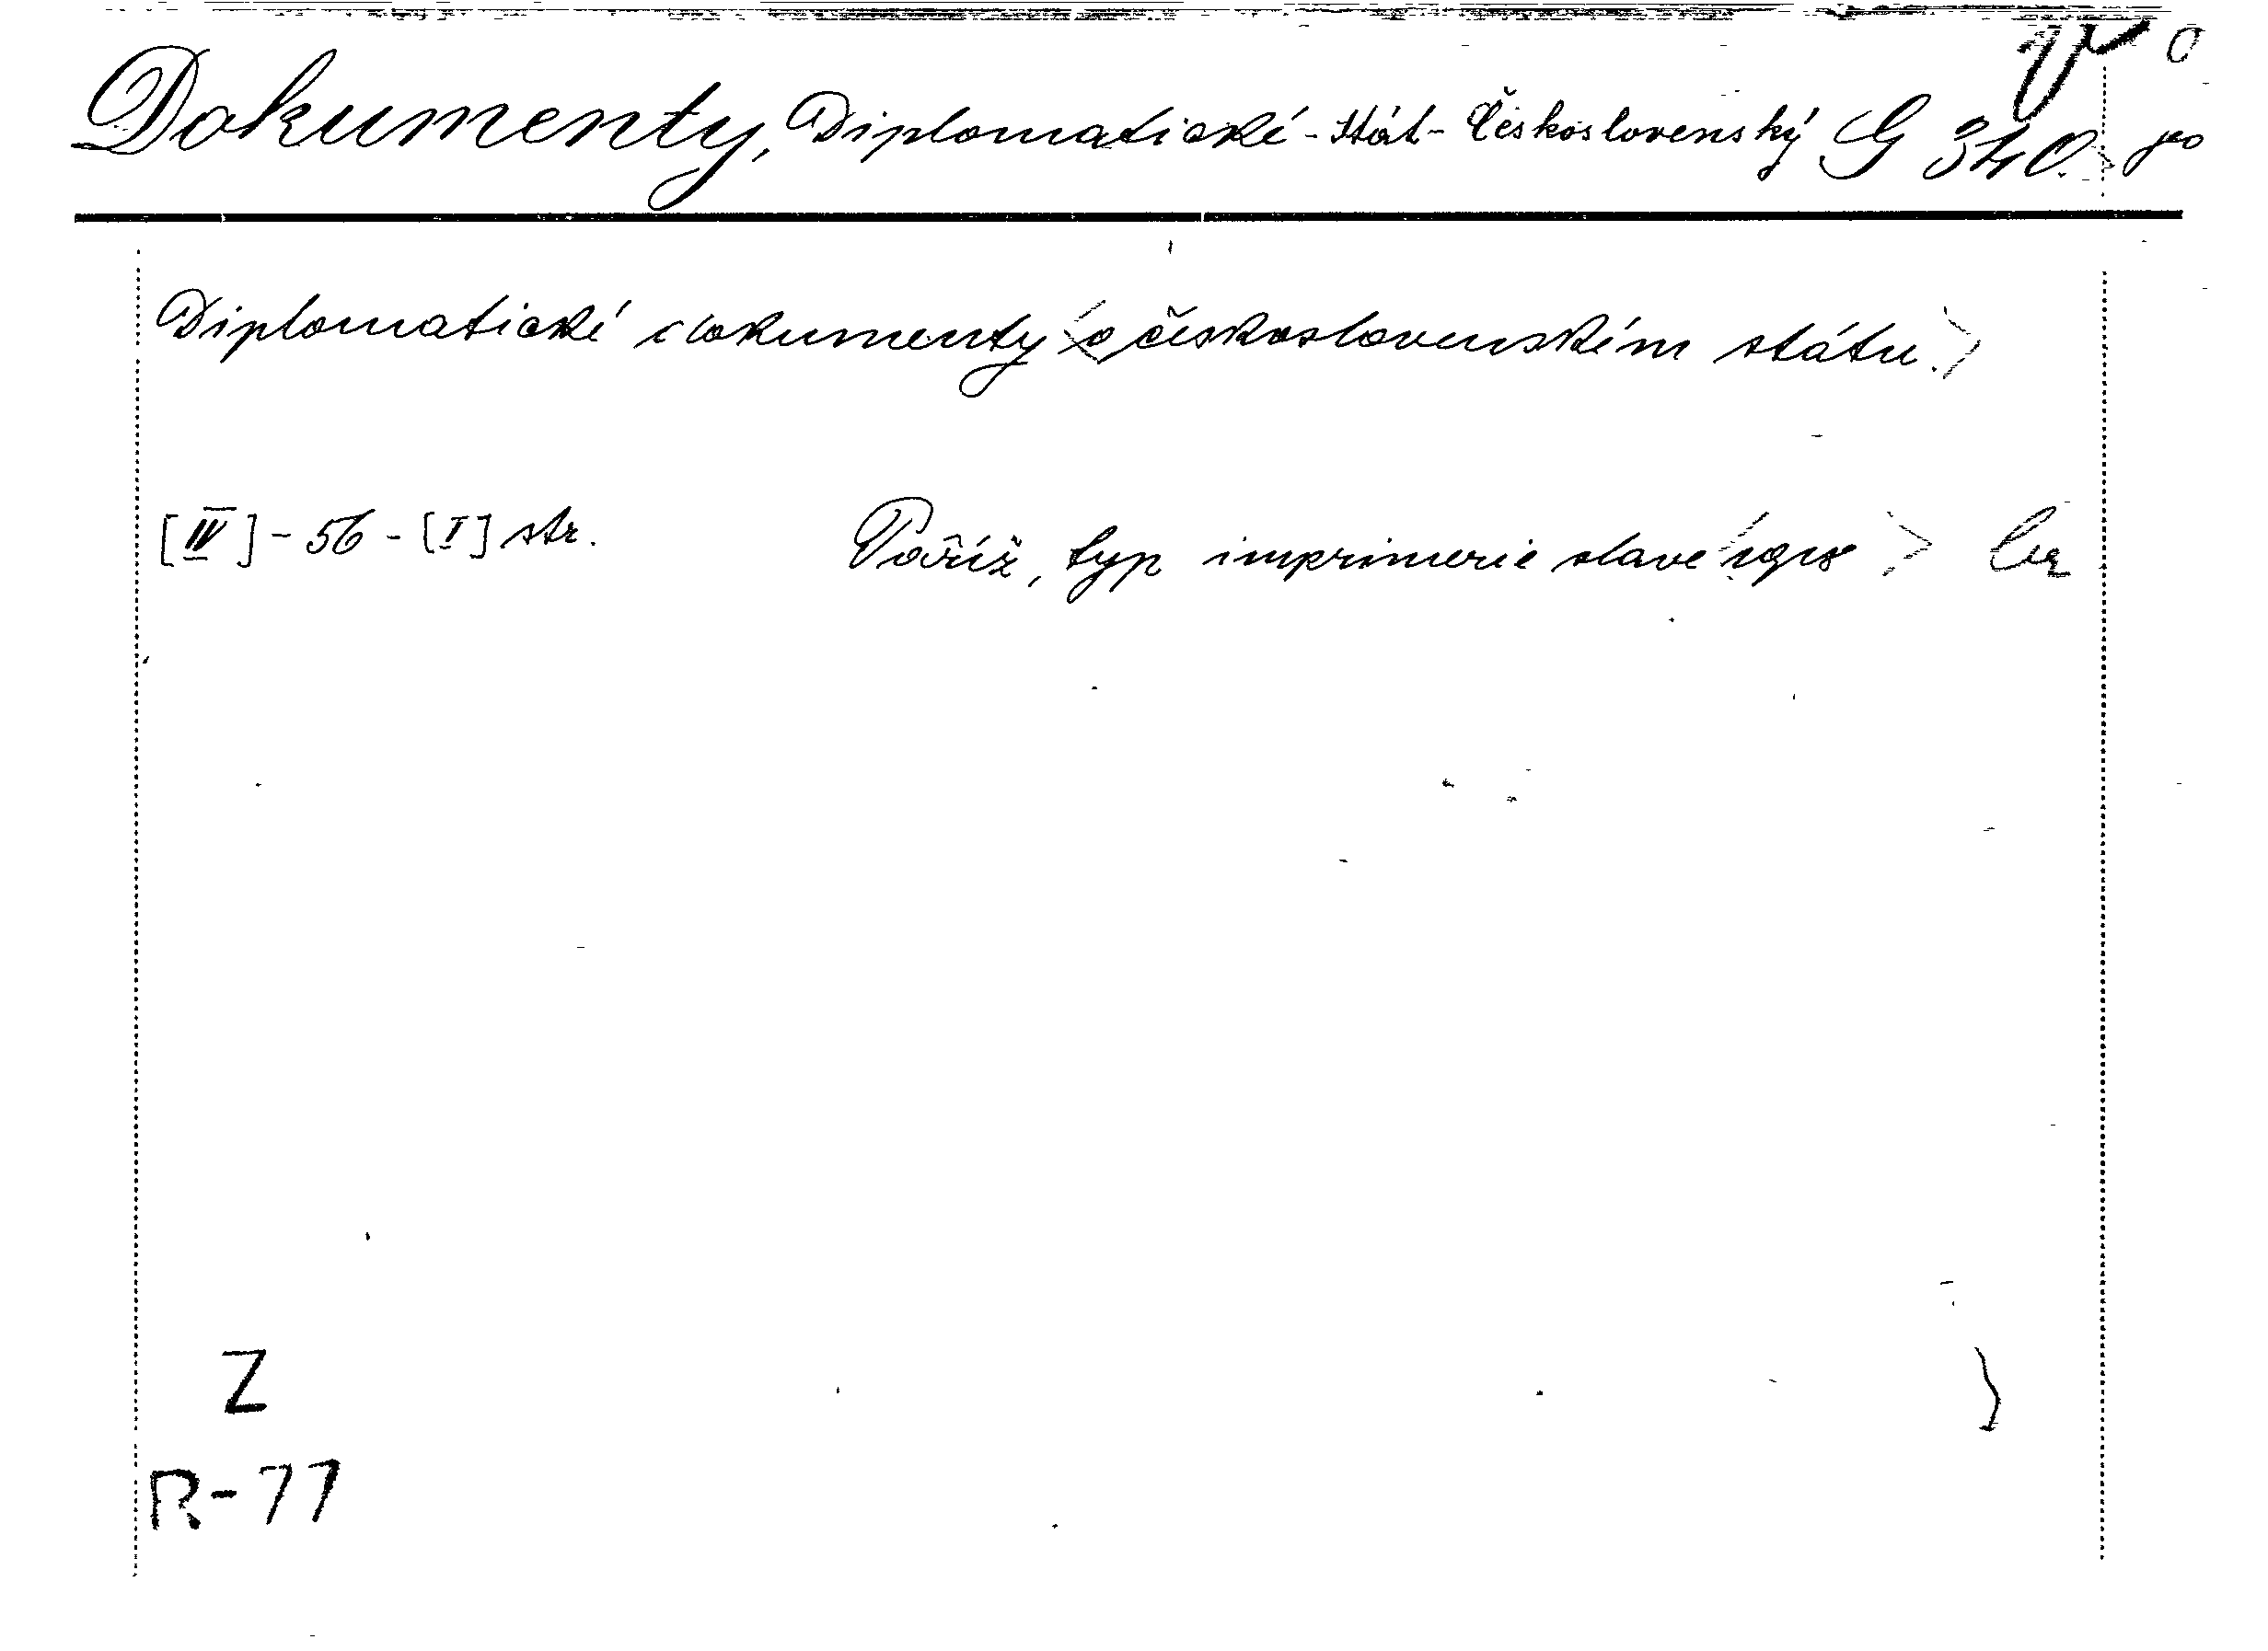 Dokumenty, Diplomatické - Stát - Československý G 340.
Diplomatické dokumenty <o československém státu.>
[IV] - 56 - [I] str. Paříž, typ imprimerie slave <1918 >
Z
R-77